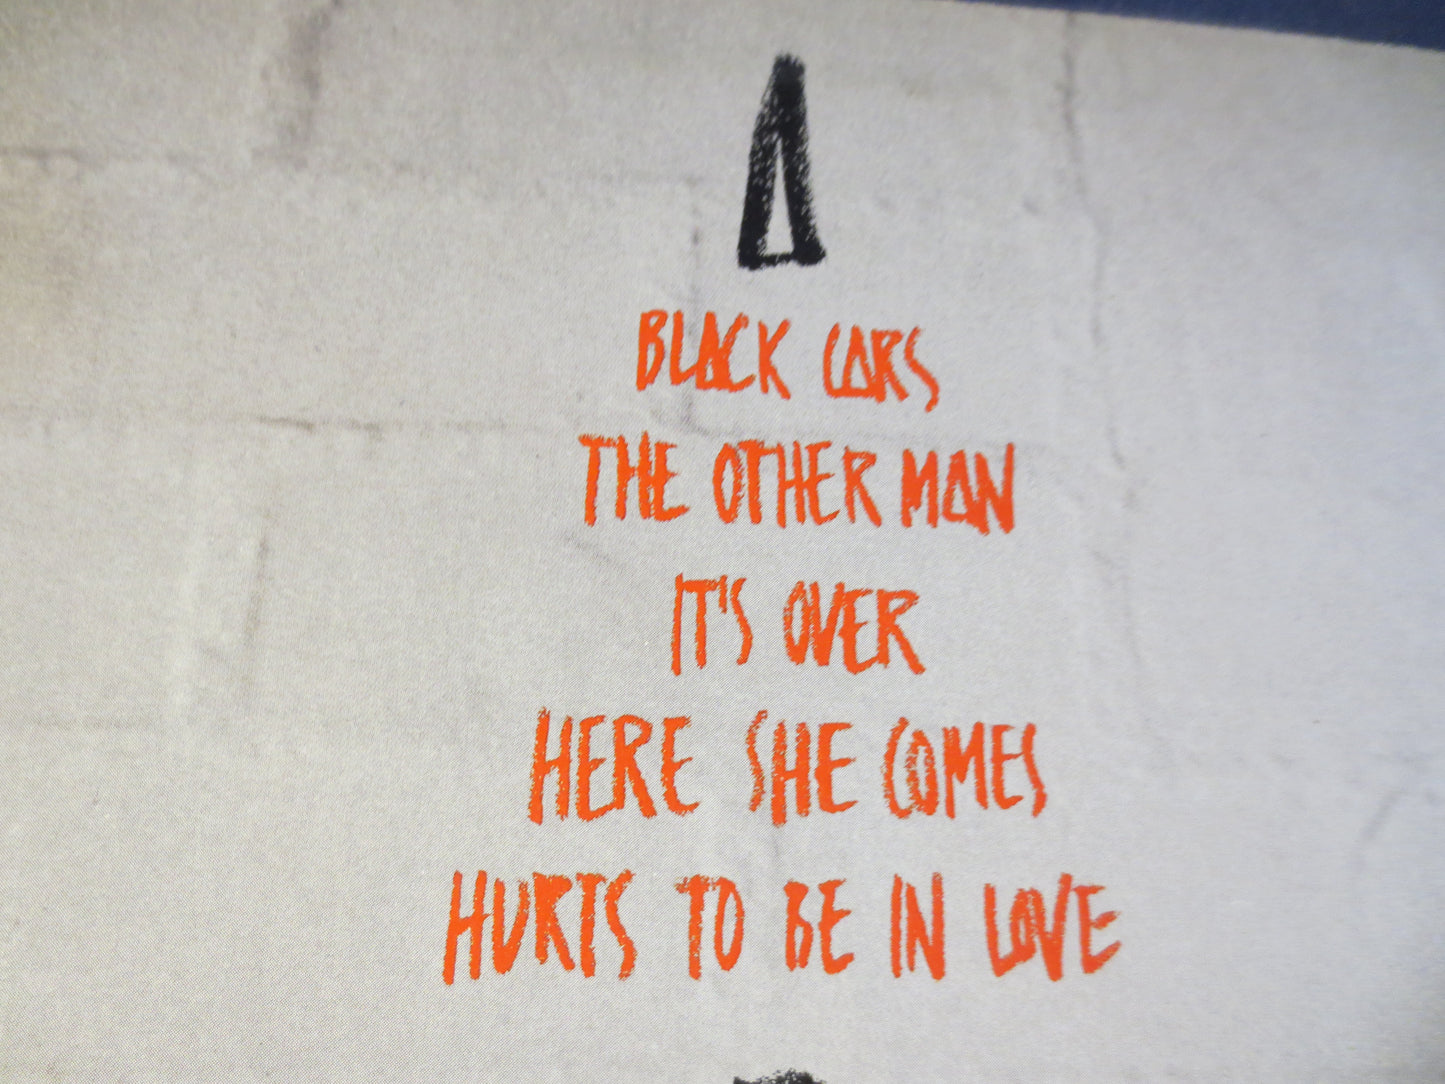 A
BLACK CARS
THE OTHER MAN
IT'S OVER
HERE SHE COMES
HURTS TO BE IN LOVE